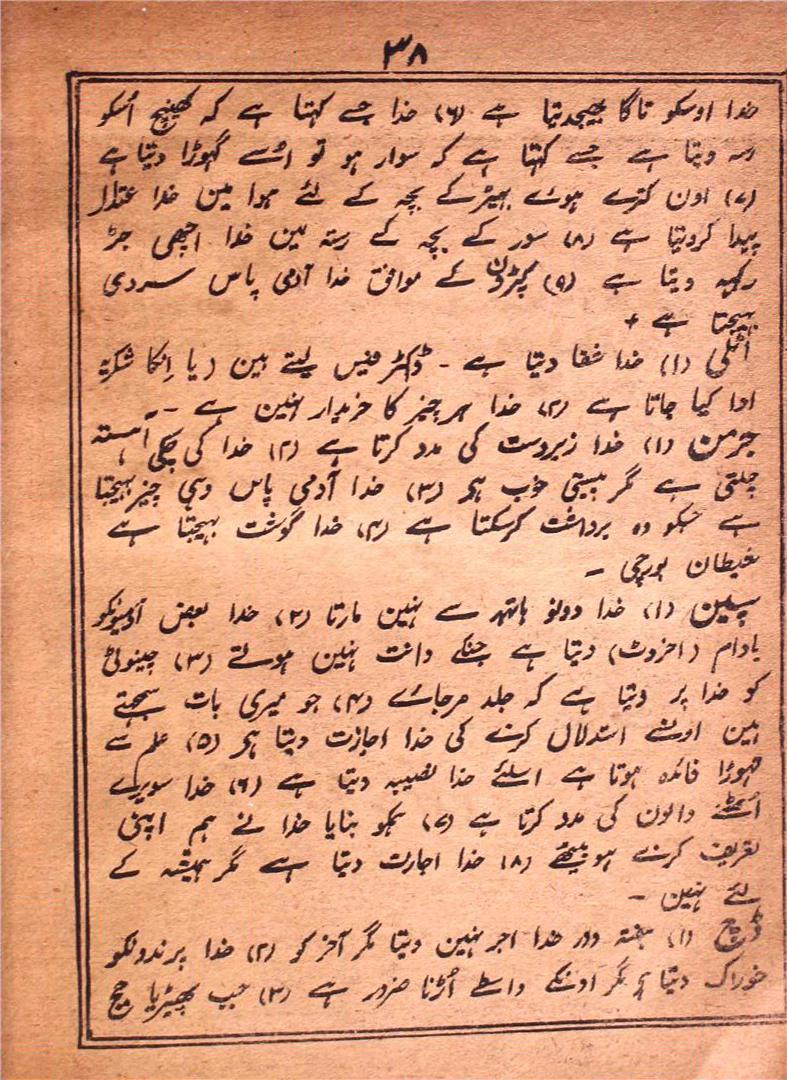 ۳۸
خدا اوسکو تاگا بھیجدیتا ہے (۶) خدا جسے کہتا ہے کہ کھینچ اُسکو
رسہ دیتا ہے جسے کہتا ہے کہ سوار ہو تو اُسے گہوڑا دیتا ہے
(۷) اون کترے ہوے بہیڑ کے بچہ کے لئے ہوا مین خدا اعتدال
پیدا کردیتا ہے (۸) سور کے بچہ کے رستہ مین خدا اچھی جڑ
رکہہ دیتا ہے (۹) کپڑون کے موافق خدا آدمی پاس سردی
بہیجتا ہے +
اٹلی (۱) خدا شفا دیتا ہے - ڈاکٹر فیس لیتے ہین (یا اِنکا شکریہ
ادا کیا جاتا ہے (۲) خدا ہر چیز کا خریدار نہین ہے --
جرمن (۱) خدا زبردست کی مدد کرتا ہے (۲) خدا کی چکی آہستہ
چلتی ہے مگر پیستی خوب ہے (۳) خدا آدمی پاس وہی چیز بہیجتا
ہے جسکو وہ برداشت کرسکتا ہے (۴) خدا گوشت بہیجتا ہے
شیطان بورچی -
سپین (۱) خدا دونو ہاتہہ سے نہین مارتا (۲) خدا بعض آدمیونکو
بادام (اخروٹ) دیتا ہے جنکے دانت نہین ہوتے (۳) چینوٹی
کو خدا پر دیتا ہے کہ جلد مرجاے (۴) جو میری بات سمجتے
ہین اونسے استدلال کرنے کی خدا اجازت دیتا ہے (۵) علم سے
تہوڑا فائدہ ہوتا ہے اسلئے خدا نصیبہ دیتا ہے (۶) خدا سویرے
اُٹھنے والون کی مدد کرتا ہے (۷) ہمکو بنایا خدا نے ہم اپنی
تعریف کرنے ہو بیٹھے (۸) خدا اجازت دیتا ہے مگر ہمیشہ کے
لئے نہین -
ڈچ (۱) ہفتہ وار خدا اجر نہین دیتا مگر آخر کو (۲) خدا پرندونکو
خوراک دیتا ہے مگر اونکے واسطے اُڑنا ضرور ہے (۳) جب بھیڑیا حج